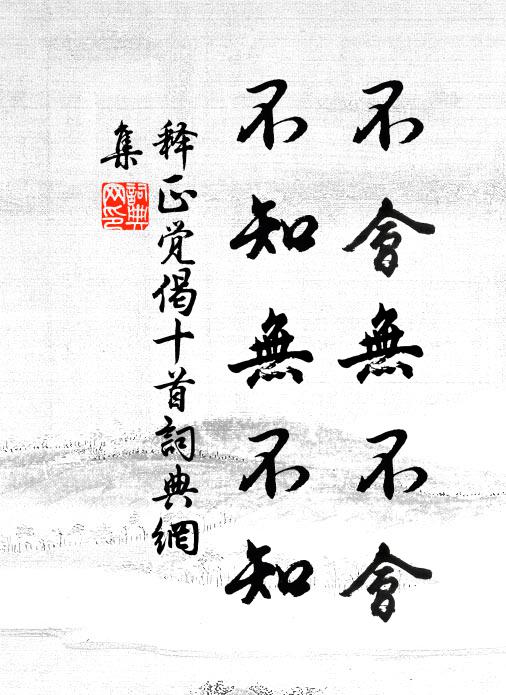 不會無不會
不知無不知
释正觉偈十首詞典網
集
詞典
网印